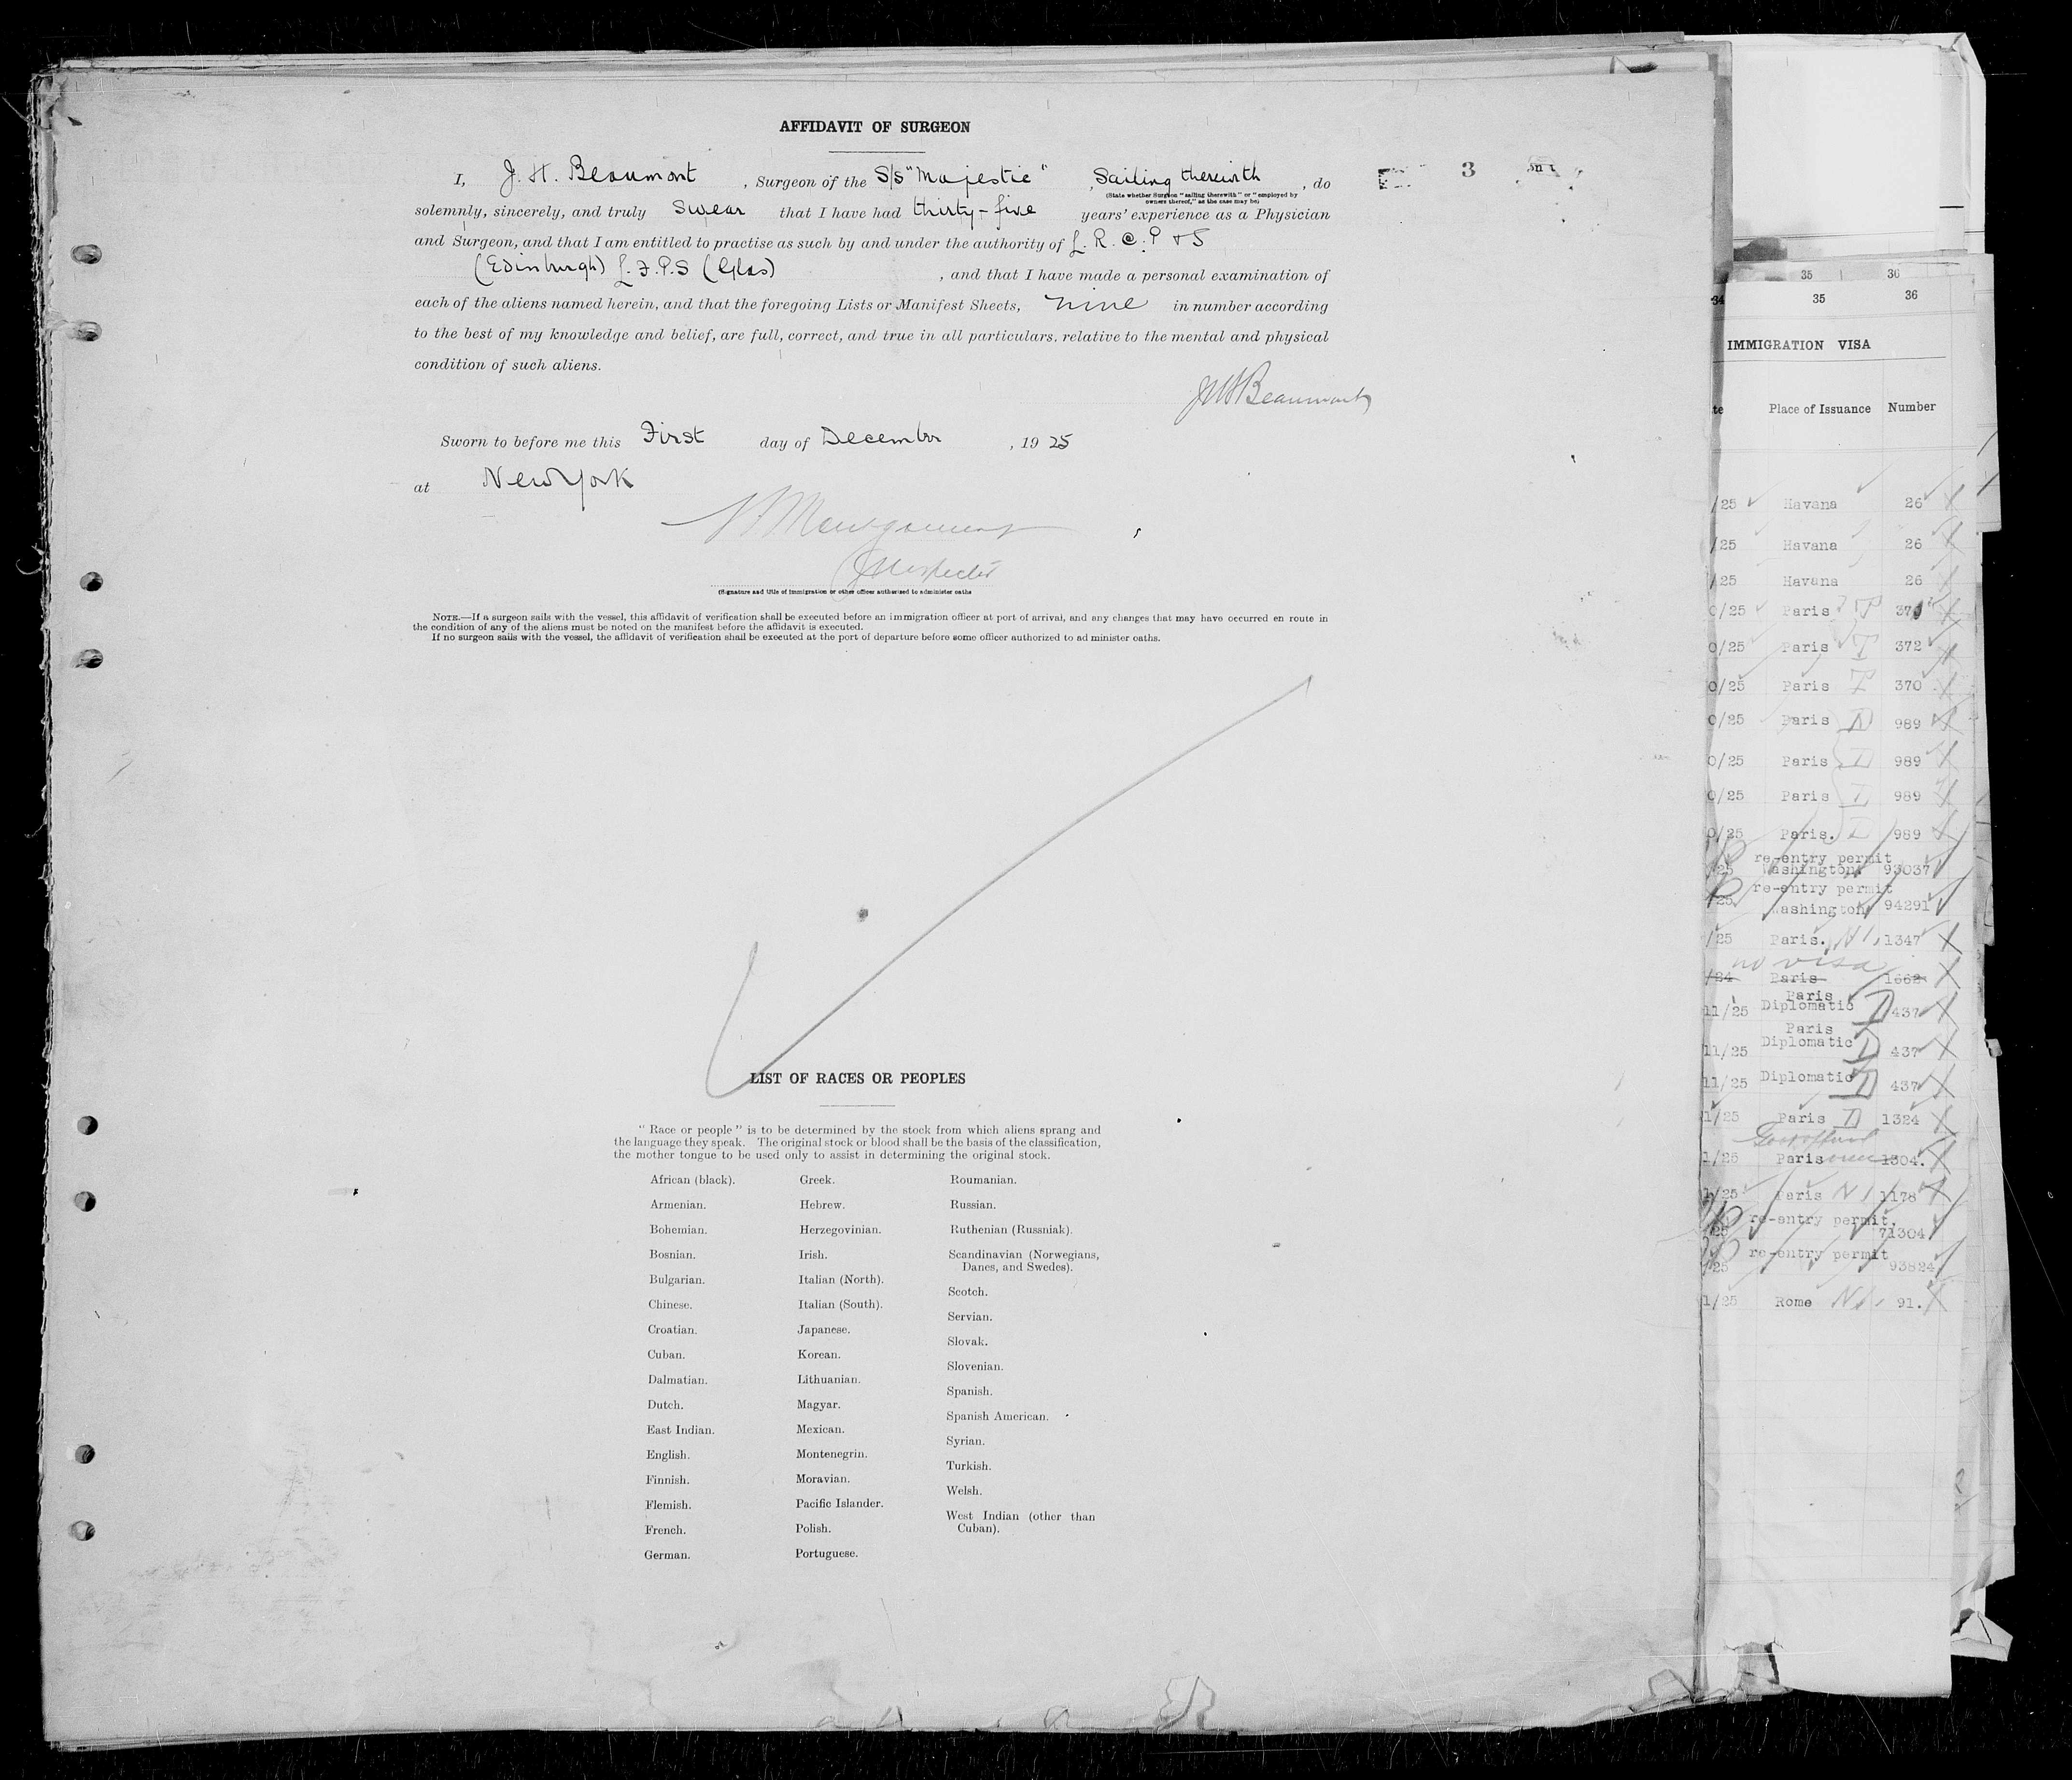 AFFIDAVIT OF SURGEON
I, J. H. Beaumont, Surgeon of the S/S "Majestic", Sailing therewith, do
(State whether Surgeon "sailing therewith" or "employed by
owners thereof," as the case may be)
3
solemnly, sincerely, and truly swear that I have had thirty-five years' experience as a Physician
and Surgeon, and that I am entitled to practise as such by and under the authority of L. R. C. P & S
(Edinburgh) L.F.P.S (Glas), and that I have made a personal examination of
each of the aliens named herein, and that the foregoing Lists or Manifest Sheets, nine in number according
to the best of my knowledge and belief, are full, correct, and true in all particulars. relative to the mental and physical
condition of such aliens.
JHBeaumont
Sworn to before me this First day of December, 1925
at New York
Montgomery
Inspector
(Signature and title of immigration or other officer authorized to administer oaths
NOTE.—If a surgeon sails with the vessel, this affidavit of verification shall be executed before an immigration officer at port of arrival, and any changes that may have occurred en route in
the condition of any of the aliens must be noted on the manifest before the affidavit is executed.
If no surgeon sails with the vessel, the affidavit of verification shall be executed at the port of departure before some officer authorized to ad minister oaths.
LIST OF RACES OR PEOPLES
"Race or people" is to be determined by the stock from which aliens sprang and
the language they speak. The original stock or blood shall be the basis of the classification,
the mother tongue to be used only to assist in determining the original stock.
African (black).
Armenian.
Bohemian.
Bosnian.
Bulgarian.
Chinese.
Croatian.
Cuban.
Dalmatian.
Dutch.
East Indian.
English.
Finnish.
Flemish.
French.
German.
Greek.
Hebrew.
Herzegovinian.
Irish.
Italian (North).
Italian (South).
Japanese.
Korean.
Lithuanian.
Magyar.
Mexican.
Montenegrin.
Moravian.
Pacific Islander.
Polish.
Portuguese.
Roumanian.
Russian.
Ruthenian (Russniak).
Scandinavian (Norwegians,
Danes, and Swedes).
Scotch.
Servian.
Slovak.
Slovenian.
Spanish.
Spanish American.
Syrian.
Turkish.
Welsh.
West Indian (other than
Cuban).
35 36
34 35 36
IMMIGRATION VISA
te Place of Issuance Number
/25 Havana 26
/25 Havana 26
/25 Havana 26
0/25 Paris
0/25 Paris 372
0/25 Paris 370
0/25 Paris 989
0/25 Paris 989
0/25 Paris 989
0/25 Paris. 989
re-entry permit
/25 Washington 93037
re-entry permit
/25 Washington 94291
/25 Paris. 1347
no visa
/24 Paris 1662
Paris
11/25 Diplomatic 437
Paris
11/25 Diplomatic 437
11/25 Diplomatic 437
1/25 Paris 1324
1/25 Paris 1304.
1/25 Paris 1178
re-entry permit.
/25 71304
re-entry permit
/25 93824
1/25 Rome 91.